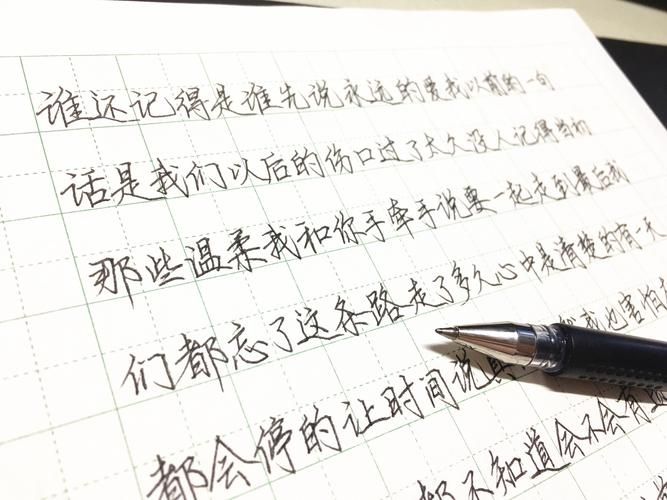 谁还记得是谁先说永远的爱我以前的一句
话是我们以后的伤口过了太久没人记得当初
那些温柔我和你手牵手说要一起走到最后我
们都忘了这条路走了多久心中是清楚的有一天
都会停的让时间说真我也害怕
都不知道会不会有